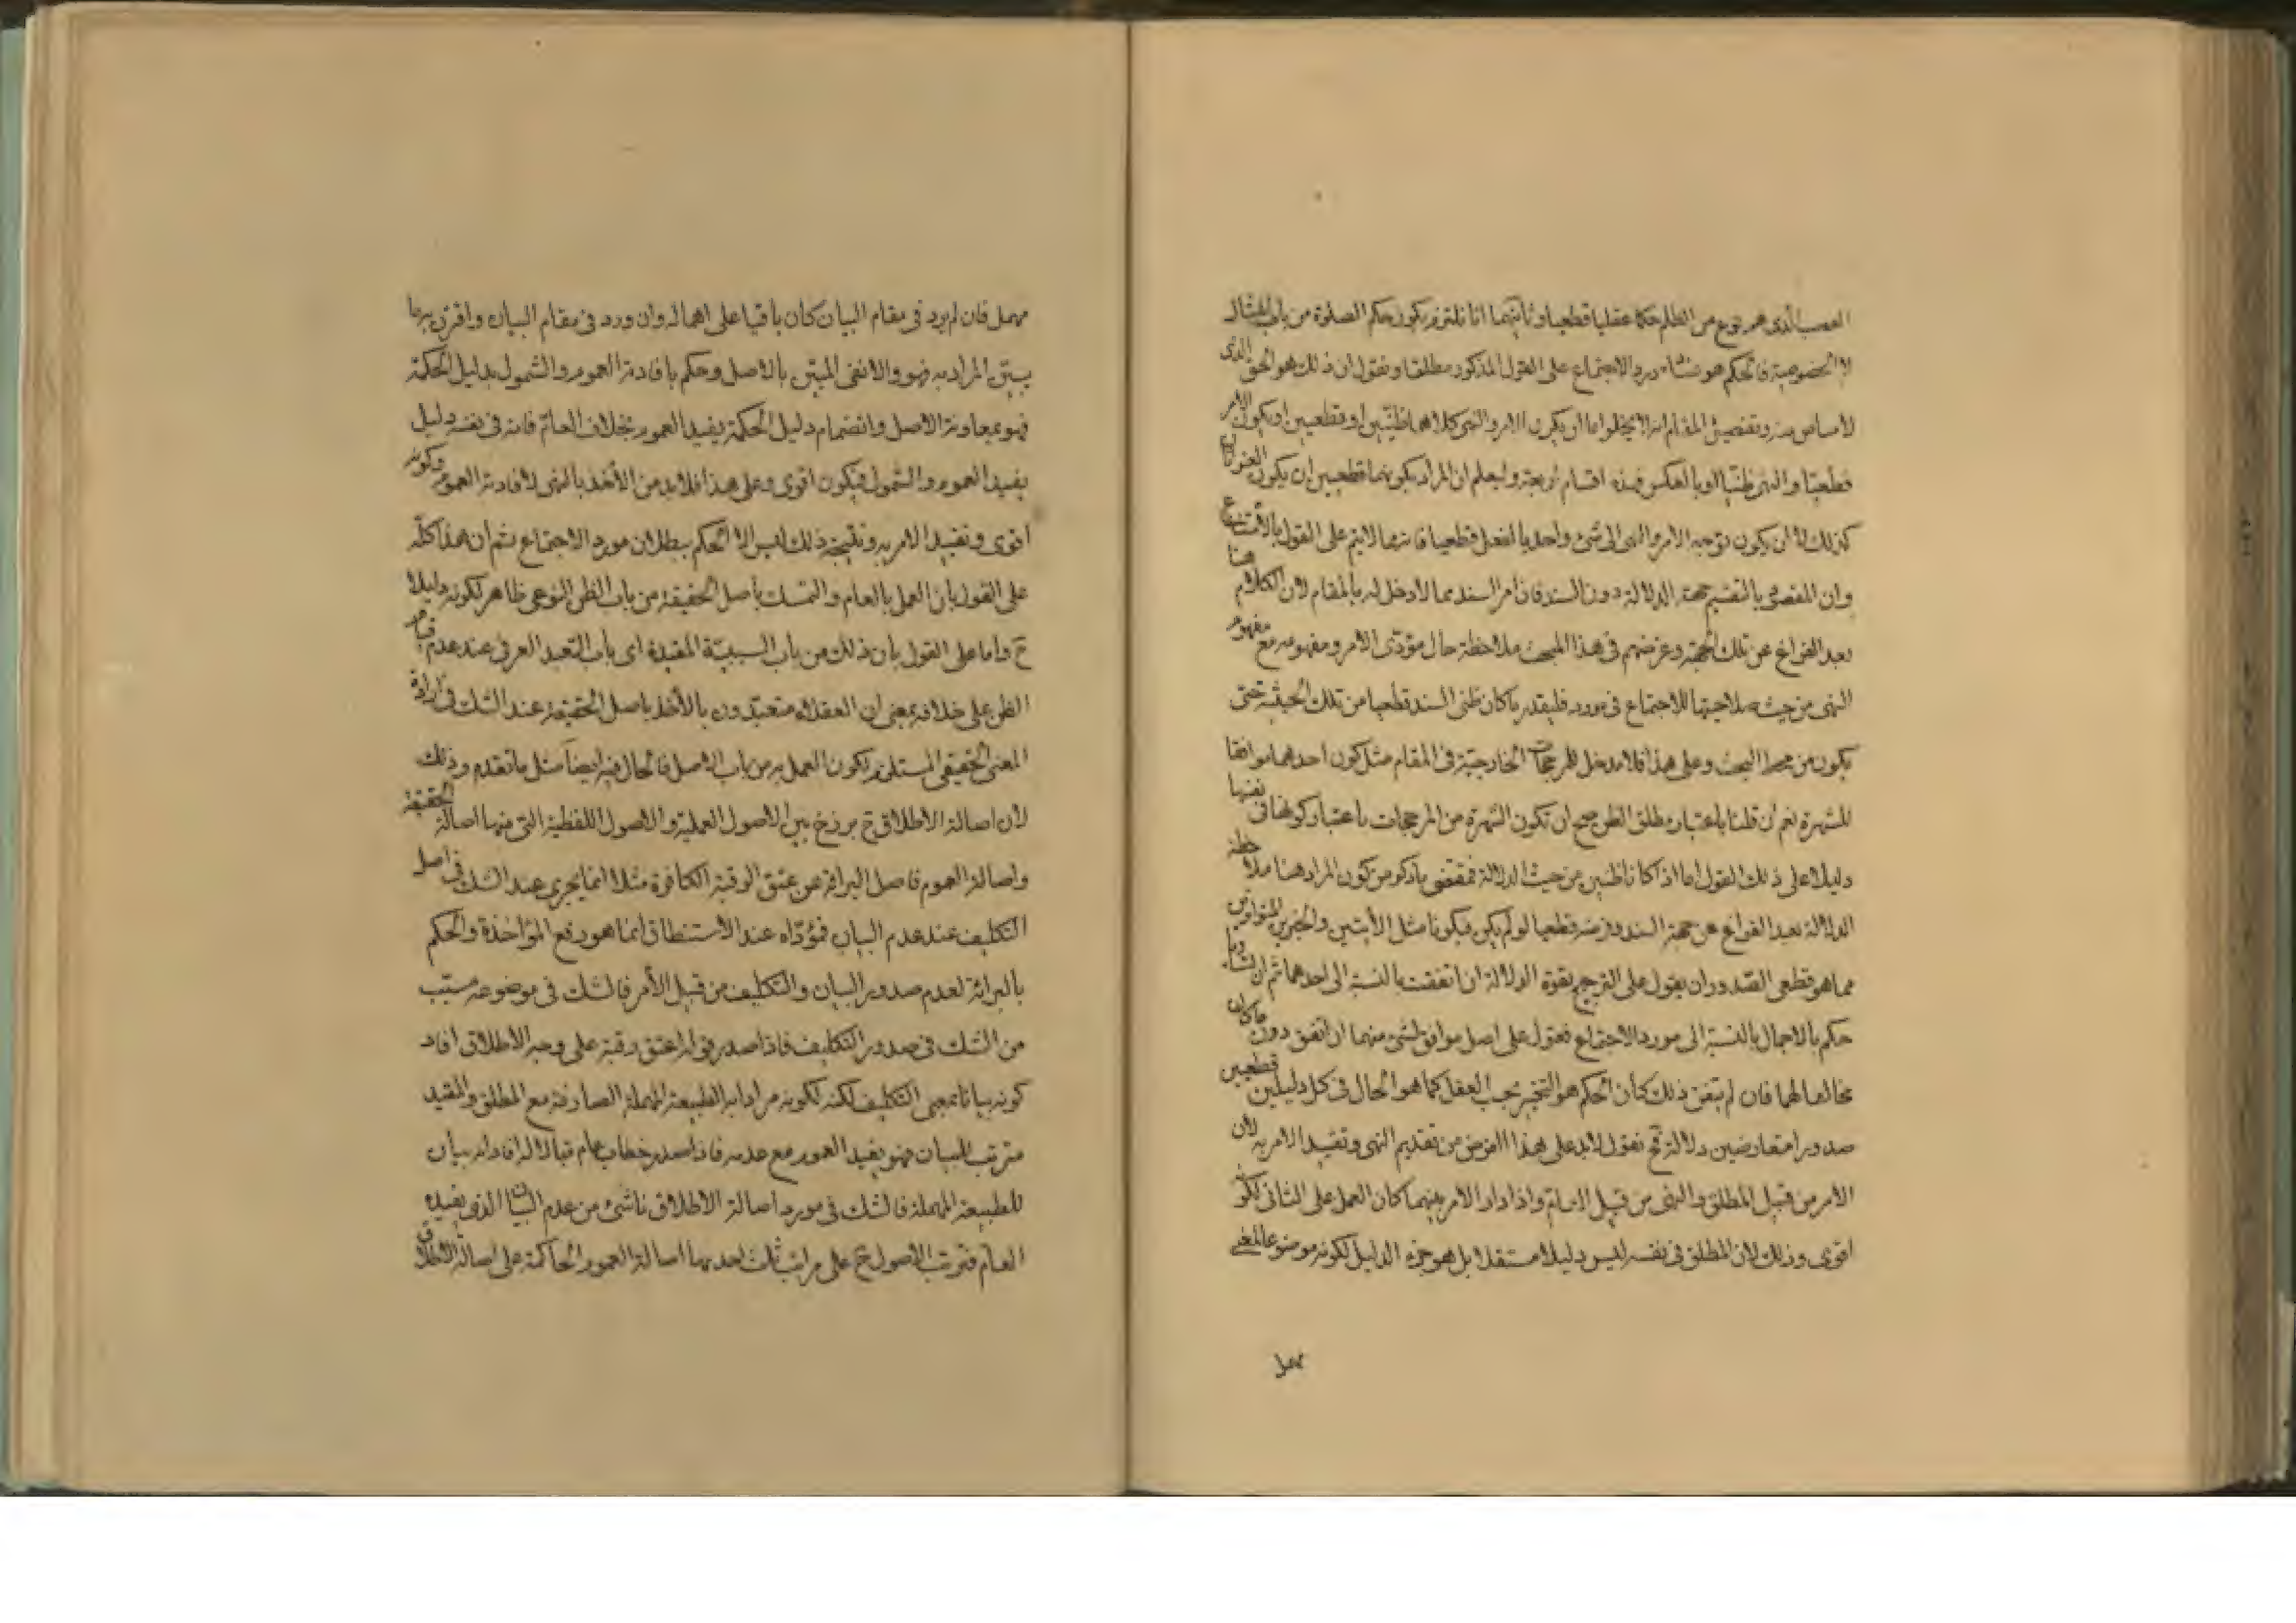 الغصب الذى هو نوع من الظلم حكما عقليا قطعيا وثانيهما انا نلتزم بكون حكم الصلوة من باب المثال
لا الخصوصية فالحكم هو فساد مورد الاجتماع على القول المذكور مطلقا ونقول ان ذلك هو الحق الذى
لا مناص منه وتفصيل المقام انه لا يخلوا اما ان يكون الامر والنهى كلاهما ظنيين او قطعيين او يكون الامر
قطعيا والنهى ظنيا او بالعكس فهذه اقسام اربعة وليعلم ان المراد بكونهما قطعيين ان يكون العنوانان
كذلك لا ان يكون توجه الامر والنهى الى شئ واحد بالفعل قطعيا فانه مما لا يتم على القول بالامتناع
وان المقصود بالتقسيم جهة الدلالة دون السند فان امر السند مما لا دخل له بالمقام لان الكلام هنا
بعد الفراغ عن تلك الجهة وغرضهم فى هذا المبحث ملاحظة حال مؤدى الامر ومفهومه مع مفهوم
النهى من حيث صلاحيتها للاجتماع فى مورد فليقدر ما كان ظنى السند قطعيا من تلك الحيثية حتى
يكون من محط البحث وعلى هذا فلا مدخل للمرجحات الخارجية فى المقام مثل كون احدهما موافقا
للشهرة نعم ان قلنا باعتبار مطلق الظن صح ان تكون الشهرة من المرجحات باعتبار كونها فى نفسها
دليلا على ذلك القول اما اذا كانا ظنيين من حيث الدلالة فمقتضى ما ذكر من كون المراد هنا ملاحظة
الدلالة بعد الفراغ عن جهة السند وفرضه قطعيا لو لم يكن فيكونا مثل الآيتين والخبرين المتواترين
مما هو قطعى الصدور ان يقول على الترجيح بقوة الدلالة ان اتفقت بالنسبة الى احدهما ثم ان تساويا
حكم بالاجمال بالنسبة الى مورد الاجتماع فيعول على اصل موافق لشئ منهما ان اتفق دون ما كان
مخالفا لهما فان لم يتفق ذلك كان الحكم هو التخيير بحسب العقل كما هو الحال فى كل دليلين قطعيين
صدورا متعارضين دلالة فح نقول لابد على هذا الفرض من تقديم النهى وتقييد الامر به لان
الامر من قبيل المطلق والنهى من قبيل العام واذا دار الامر بينهما كان العمل على الثانى لكونه
اقوى وذلك لان المطلق فى نفسه ليس دليلا مستقلا بل هو جزء الدليل لكونه موضوعا لمعنى
مهمل
مهمل فان لم يرد فى مقام البيان كان باقيا على اهماله وان ورد فى مقام البيان واقترن به ما
يبين المراد به فهو والا نفى المبين بالاصل وحكم بافادته العموم والشمول بدليل الحكمة
فهو بمعاونة الاصل وانضمام دليل الحكمة يفيد العموم بخلاف العام فانه فى نفسه دليل
يفيد العموم والشمول فيكون اقوى وعلى هذا فلابد من الأخذ بالنهى لافادته العموم وكونه
اقوى وتقييد الامر به ونتيجة ذلك ليس الا الحكم ببطلان مورد الاجتماع ثم ان هذا كله
على القول بان العمل بالعام والتمسك بأصل الحقيقة من باب الظن النوعى ظاهر لكونه دليلا
ح واما على القول بان ذلك من باب السببية المقيدة اى باب التعبد العرفى عند عدم قيام
الظن على خلافه بمعنى ان العقلاء متعبدون بالأخذ باصل الحقيقة عند الشك فى ارادة
المعنى الحقيقى المستلزم لكون العمل به من باب الاصل فالحال فيه ايضا مثل ما تقدم وذلك
لان اصالة الاطلاق ح برزخ بين الاصول العملية والاصول اللفظية التى منها اصالة الحقيقة
واصالة العموم فاصل البرائة عن عتق الرقبة الكافرة مثلا انما يجرى عند الشك فى اصل
التكليف عند عدم البيان فمؤداه عند الاستنطاق انما هو رفع المؤاخذة والحكم
بالبرائة لعدم صدور البيان والتكليف من قبل الأمر فالشك فى موضوعه مسبب
من الشك فى صدور التكليف فاذا صدر قوله اعتق رقبة على وجه الاطلاق افاد
كونه بيانا بمعنى التكليف لكنه لكونه مرادا به الطبيعة المهملة الصادقة مع المطلق والمقيد
مترقب للبيان فهو يفيد العموم مع عدمه فاذا صدر خطاب عام قبالا له افاد انه بيان
للطبيعة المهملة فالشك فى مورد اصالة الاطلاق ناشئ من عدم البيان الذى يفيده
العام فترتب الاصول ح على مراتب ثلث احدها اصالة العموم الحاكمة على اصالة الاطلاق